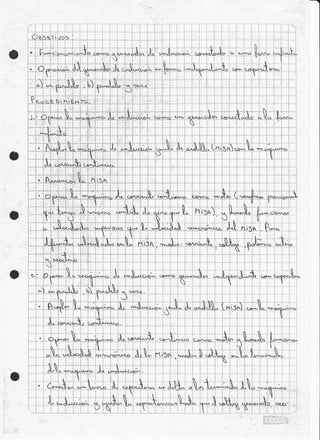 OBJETIVOS:
• Funcionamiento como generador de inducción conectado a una barra infinita
• Operación del generador de inducción en forma independiente con capacitores
a) en paralelo, b) paralelo y serie
PROCEDIMIENTO:
1.- Operar la máquina de inducción como un generador conectado a la barra
infinita
• Acoplar la máquina de inducción jaula de ardilla (MIJA) con la máquina
de corriente continua.
• Arrancar la MIJA
• Operar la máquina de corriente continua como motor (verificar previamente
que tenga el mismo sentido de giro que la MIJA), y hacerla funcionar
a velocidades superiores que la velocidad sincrónica del MIJA. Para
diferentes velocidades en la MIJA, medir: corriente, voltaje, potencia activa
y reactiva
2.- Operar la máquina de inducción como generador independiente con capacitores
a) en paralelo, b) paralelo y serie.
• Acoplar la máquina de inducción jaula de ardilla (MIJA) con la máquina
de corriente continua.
• Operar la máquina de corriente continua como motor y hacerla funcionar
a la velocidad sincrónica de la MIJA, medir el voltaje en los terminales
de la máquina de inducción.
• Conectar un banco de capacitores en delta a los terminales de la máquina
de inducción y ajustar la capacitancia hasta que el voltaje generado sea